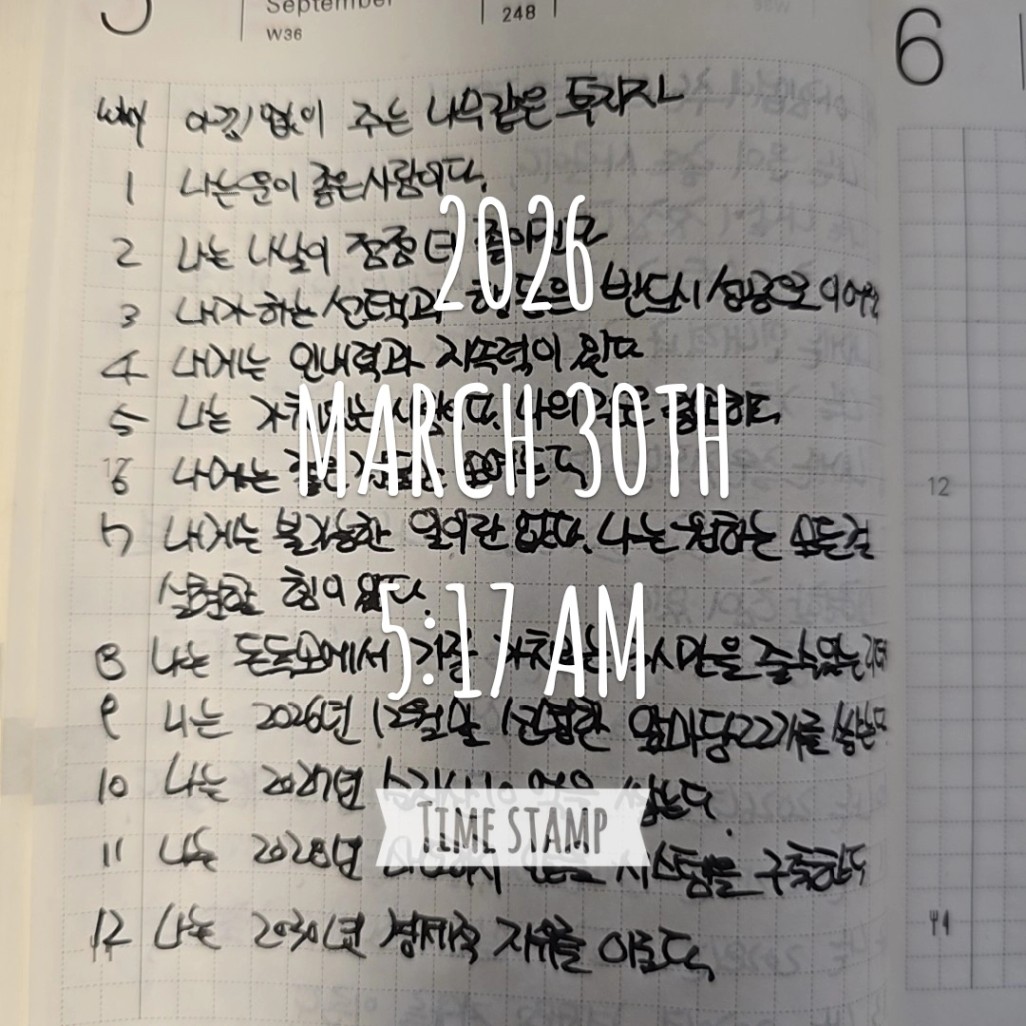 5 September 248 6
W36
Why 아낌없이 주는 나무같은 투자자
1 나는 운이 좋은사람이다.
2 나는 나날이 점점 더
2026
3 내가하는 선택과 행동은 반드시 성공으로 이어
4 내게는 인내력과 지속력이 있다
5 나는 나의
MARCH 30TH
6 나에는
12
7 내게는 불가능한 일이란 없다. 나는 원하는 모든걸
실현할 힘이 있다.
5:17 AM
8 나는 에서 줄수있는
9 나는 2026년 12월말 앞마당22개를
10 나는 2027년
TIME STAMP
11 나는 2028년 시스템을 구축한다
12 나는 2030년 경제적 자유를 이룬다.